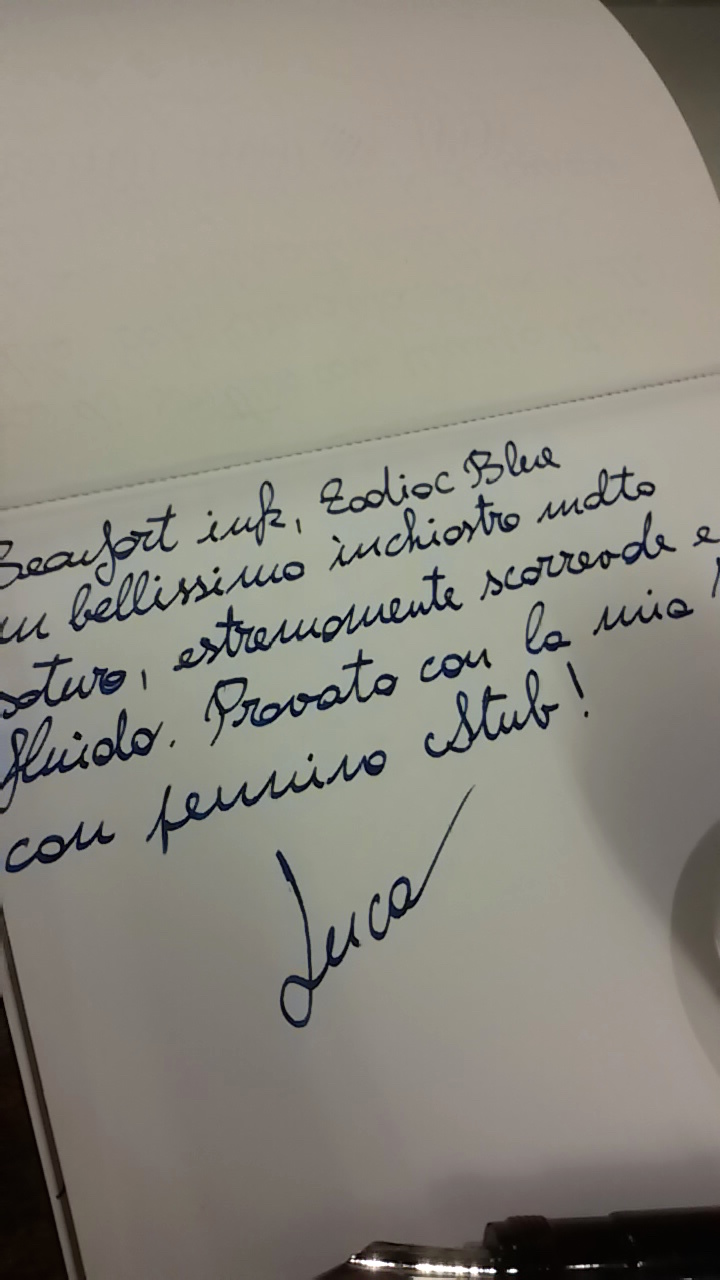 Beaufort ink, Zodiac Blue
un bellissimo inchiostro molto
saturo, estremamente scorrevole e
fluido. Provato con la mia
con pennino Stub!
Luca